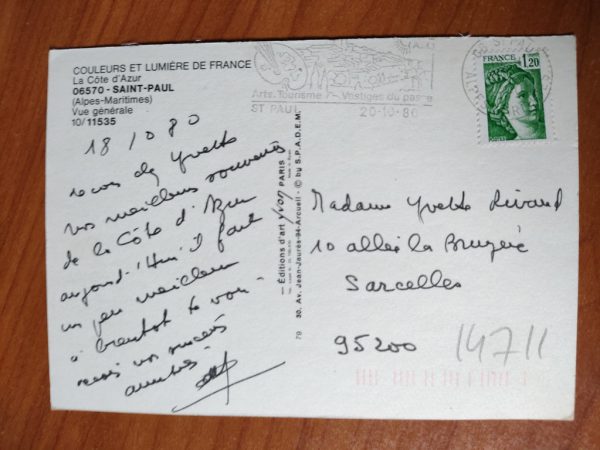 COULEURS ET LUMIÈRE DE FRANCE
La Côte d'Azur
06570 - SAINT-PAUL
(Alpes-Maritimes)
Vue générale
10/11535
18/10 80
Yvette
nos meilleurs souvenirs
de la Côte d'Azur
aujourd'hui il fait
un peu meilleur
à bientôt te voir
reçois nos sincères
amitiés
— Éditions d'art yvon PARIS
30, Av. Jean-Jaurès-94-Arcueil - © by S.P.A.D.E.M.
79
Arts. Tourisme Vestiges du passé
ST PAUL
20-10-80
FRANCE
1,20
Madame Yvette Rivaud
10 allée la Bruyère
Sarcelles
95200
14711